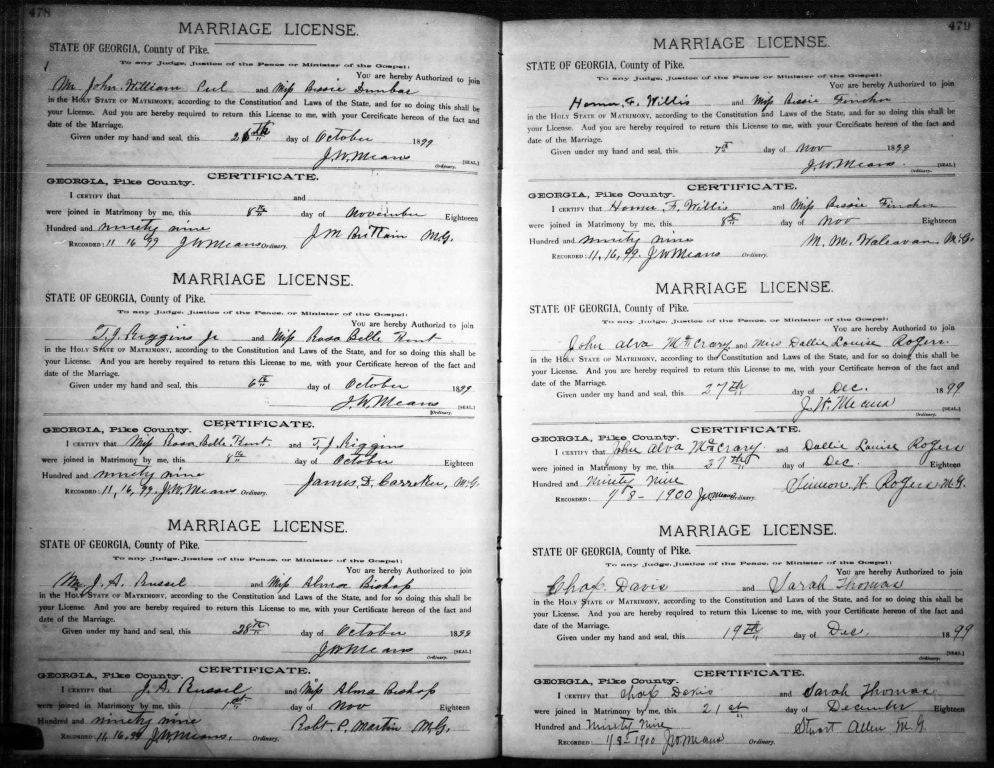 478
MARRIAGE LICENSE.
STATE OF GEORGIA, County of Pike.
To any Judge, Justice of the Peace or Minister of the Gospel:
You are hereby Authorized to join
Mr. John William and Miss Bessie Dunbar
in the HOLY STATE OF MATRIMONY, according to the Constitution and Laws of the State, and for so doing this shall be
your License. And you are hereby required to return this License to me, with your Certificate hereon of the fact and
date of the Marriage.
Given under my hand and seal, this day of October 1899
J.W. Means [SEAL.]
Ordinary.
CERTIFICATE.
GEORGIA, Pike County.
I CERTIFY that and
were joined in Matrimony by me, this 8th day of November Eighteen
Hundred and ninety nine J M Brittain M.G.
RECORDED: 11 16 99 J W Means Ordinary.
MARRIAGE LICENSE.
STATE OF GEORGIA, County of Pike.
To any Judge, Justice of the Peace, or Minister of the Gospel:
You are hereby Authorized to join
T. J. Riggins Jr and Miss Rosa Belle Hunt
in the HOLY STATE OF MATRIMONY, according to the Constitution and Laws of the State, and for so doing this shall be
your License. And you are hereby required to return this License to me, with your Certificate hereon of the fact and
date of the Marriage.
Given under my hand and seal, this 6th day of October 1899
J. W. Means [SEAL.]
Ordinary.
CERTIFICATE.
GEORGIA, Pike County.
I CERTIFY that Miss Rosa Belle Hunt, and T. J. Riggins
were joined in Matrimony by me, this 8th day of October Eighteen
Hundred and ninety nine James D. Carreker, M.G.
RECORDED: 11, 16, 99. J. W. Means Ordinary.
MARRIAGE LICENSE.
STATE OF GEORGIA, County of Pike.
To any Judge, Justice of the Peace, or Minister of the Gospel:
You are hereby Authorized to join
Mr. J. A. Russel and Miss Alma Bishop
in the HOLY STATE OF MATRIMONY, according to the Constitution and Laws of the State, and for so doing this shall be
your License. And you are hereby required to return this License to me, with your Certificate hereon of the fact and
date of the Marriage.
Given under my hand and seal, this 28th day of October 1899
J W Means [SEAL.]
Ordinary.
CERTIFICATE.
GEORGIA, Pike County.
I CERTIFY that J. A. Russel and Miss Alma Bishop
were joined in Matrimony by me, this 1st day of Nov Eighteen
Hundred and ninety nine Robt. P. Martin M.G.
RECORDED: 11, 16, 99 J. W. Means, Ordinary.
479
MARRIAGE LICENSE.
STATE OF GEORGIA, County of Pike.
To any Judge, Justice of the Peace or Minister of the Gospel:
You are hereby Authorized to join
Homer F. Willis and Miss Bessie
in the HOLY STATE OF MATRIMONY, according to the Constitution and Laws of the State, and for so doing this shall be
your License. And you are hereby required to return this License to me, with your Certificate hereon of the fact and
date of the Marriage.
Given under my hand and seal, this 7th day of Nov 1899
J. W. Means. [SEAL.]
Ordinary.
CERTIFICATE.
GEORGIA, Pike County.
I CERTIFY that Homer F. Willis and Miss Bessie
were joined in Matrimony by me, this 8th day of Nov Eighteen
Hundred and ninety nine M. M. M.G.
RECORDED: 11, 16, 99. J W Means Ordinary.
MARRIAGE LICENSE.
STATE OF GEORGIA, County of Pike.
To any Judge, Justice of the Peace, or Minister of the Gospel:
You are hereby Authorized to join
John Alva McCrary and Miss Dallie Louise Rogers
in the HOLY STATE OF MATRIMONY, according to the Constitution and Laws of the State, and for so doing this shall be
your License. And you are hereby required to return this License to me, with your Certificate hereon of the fact and
date of the Marriage.
Given under my hand and seal, this 27th day of Dec. 1899
J. W. Means [SEAL.]
Ordinary.
CERTIFICATE.
GEORGIA, Pike County.
I CERTIFY that John Alva McCrary and Dallie Louise Rogers
were joined in Matrimony by me, this 27th day of Dec. Eighteen
Hundred and Ninety Nine Simeon W Rogers M.G.
RECORDED: 8 - 1900 J W Means Ordinary.
MARRIAGE LICENSE.
STATE OF GEORGIA, County of Pike.
To any Judge, Justice of the Peace, or Minister of the Gospel:
You are hereby Authorized to join
Chas. Davis and Sarah Thomas
in the HOLY STATE OF MATRIMONY, according to the Constitution and Laws of the State, and for so doing this shall be
your License. And you are hereby required to return this License to me, with your Certificate hereon of the fact and
date of the Marriage.
Given under my hand and seal, this 19th day of Dec. 1899
[SEAL.]
Ordinary.
CERTIFICATE.
GEORGIA, Pike County.
I CERTIFY that Chas Davis and Sarah Thomas
were joined in Matrimony by me, this 21st day of December Eighteen
Hundred and Ninety Nine Stuart Allen M.G.
RECORDED: 1900 J W Means Ordinary.